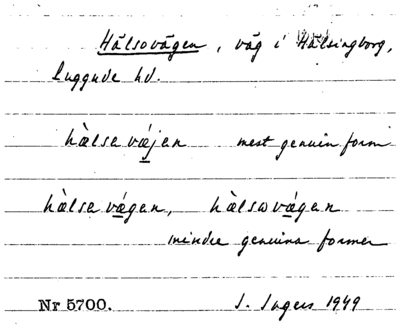 Hälsovägen, väg i Hälsingborg,
Luggude hd.
hàlsa væ̀jen mest genuin form
hàlsa vægen, hàlsω vægen
mindre genuina former
Nr 5700. I. Ingers 1949